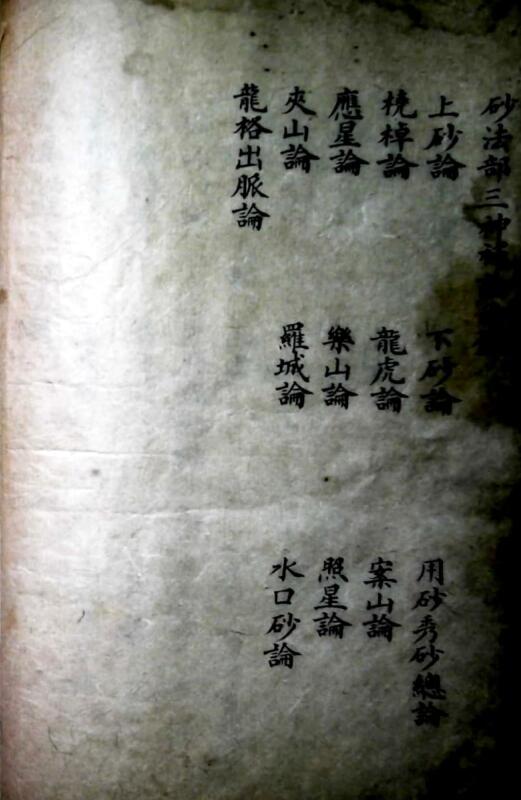 砂法部三
上砂論
下砂論
用砂秀砂總論
橈棹論
龍虎論
案山論
應星論
樂山論
照星論
夾山論
羅城論
水口砂論
龍格出脈論